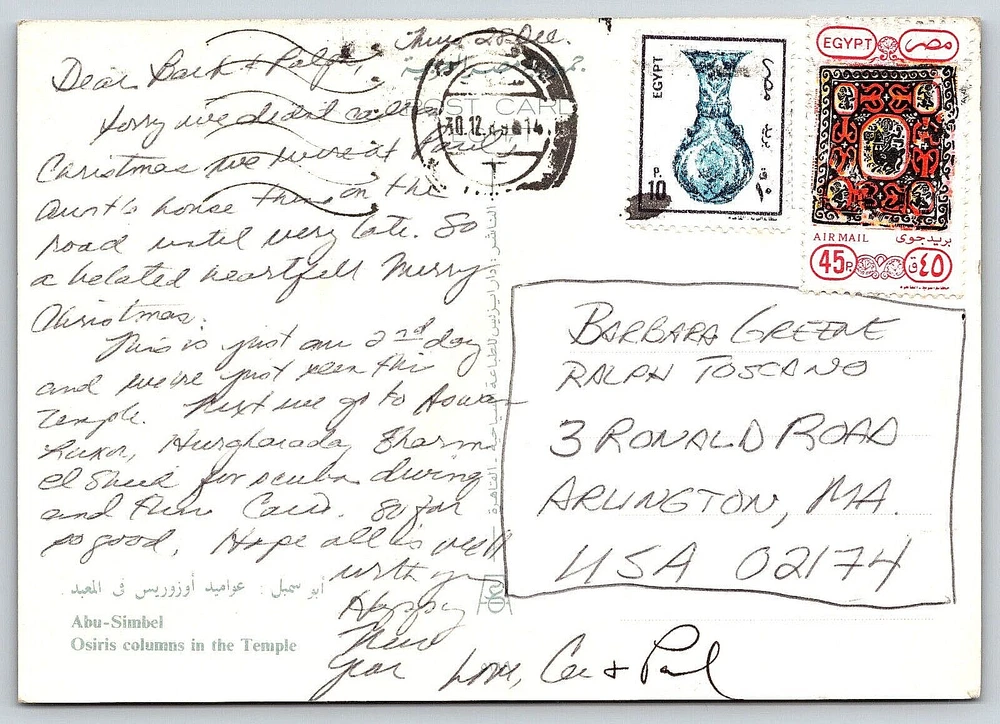 Thurs. 28 Dec.
Dear Barb + Ralph,
Sorry we didn't call on
Christmas we were at Paul's
aunt's house then on the
road until very late. So
a belated heartfelt Merry
Christmas.
This is just our 2nd day
and we've just seen this
temple. Next we go to Aswan
Luxor, Hurgharada, Sharm
el Sheik for scuba diving
and then Cairo. So far
so good. Hope all is well
with you
Happy
New
Year Love, &
أبو سمبل : عواميد أوزوريس فى المعبد
Abu-Simbel
Osiris columns in the Temple
POST CARD
30.12
14
EGYPT
مصر
P.
10
ق
١٠
EGYPT مصر
AIR MAIL بريد جوى
45P. ٤٥ق
BARBARA GREENE
RALPH TOSCANO
3 RONALD ROAD
ARLINGTON, MA.
USA 02174